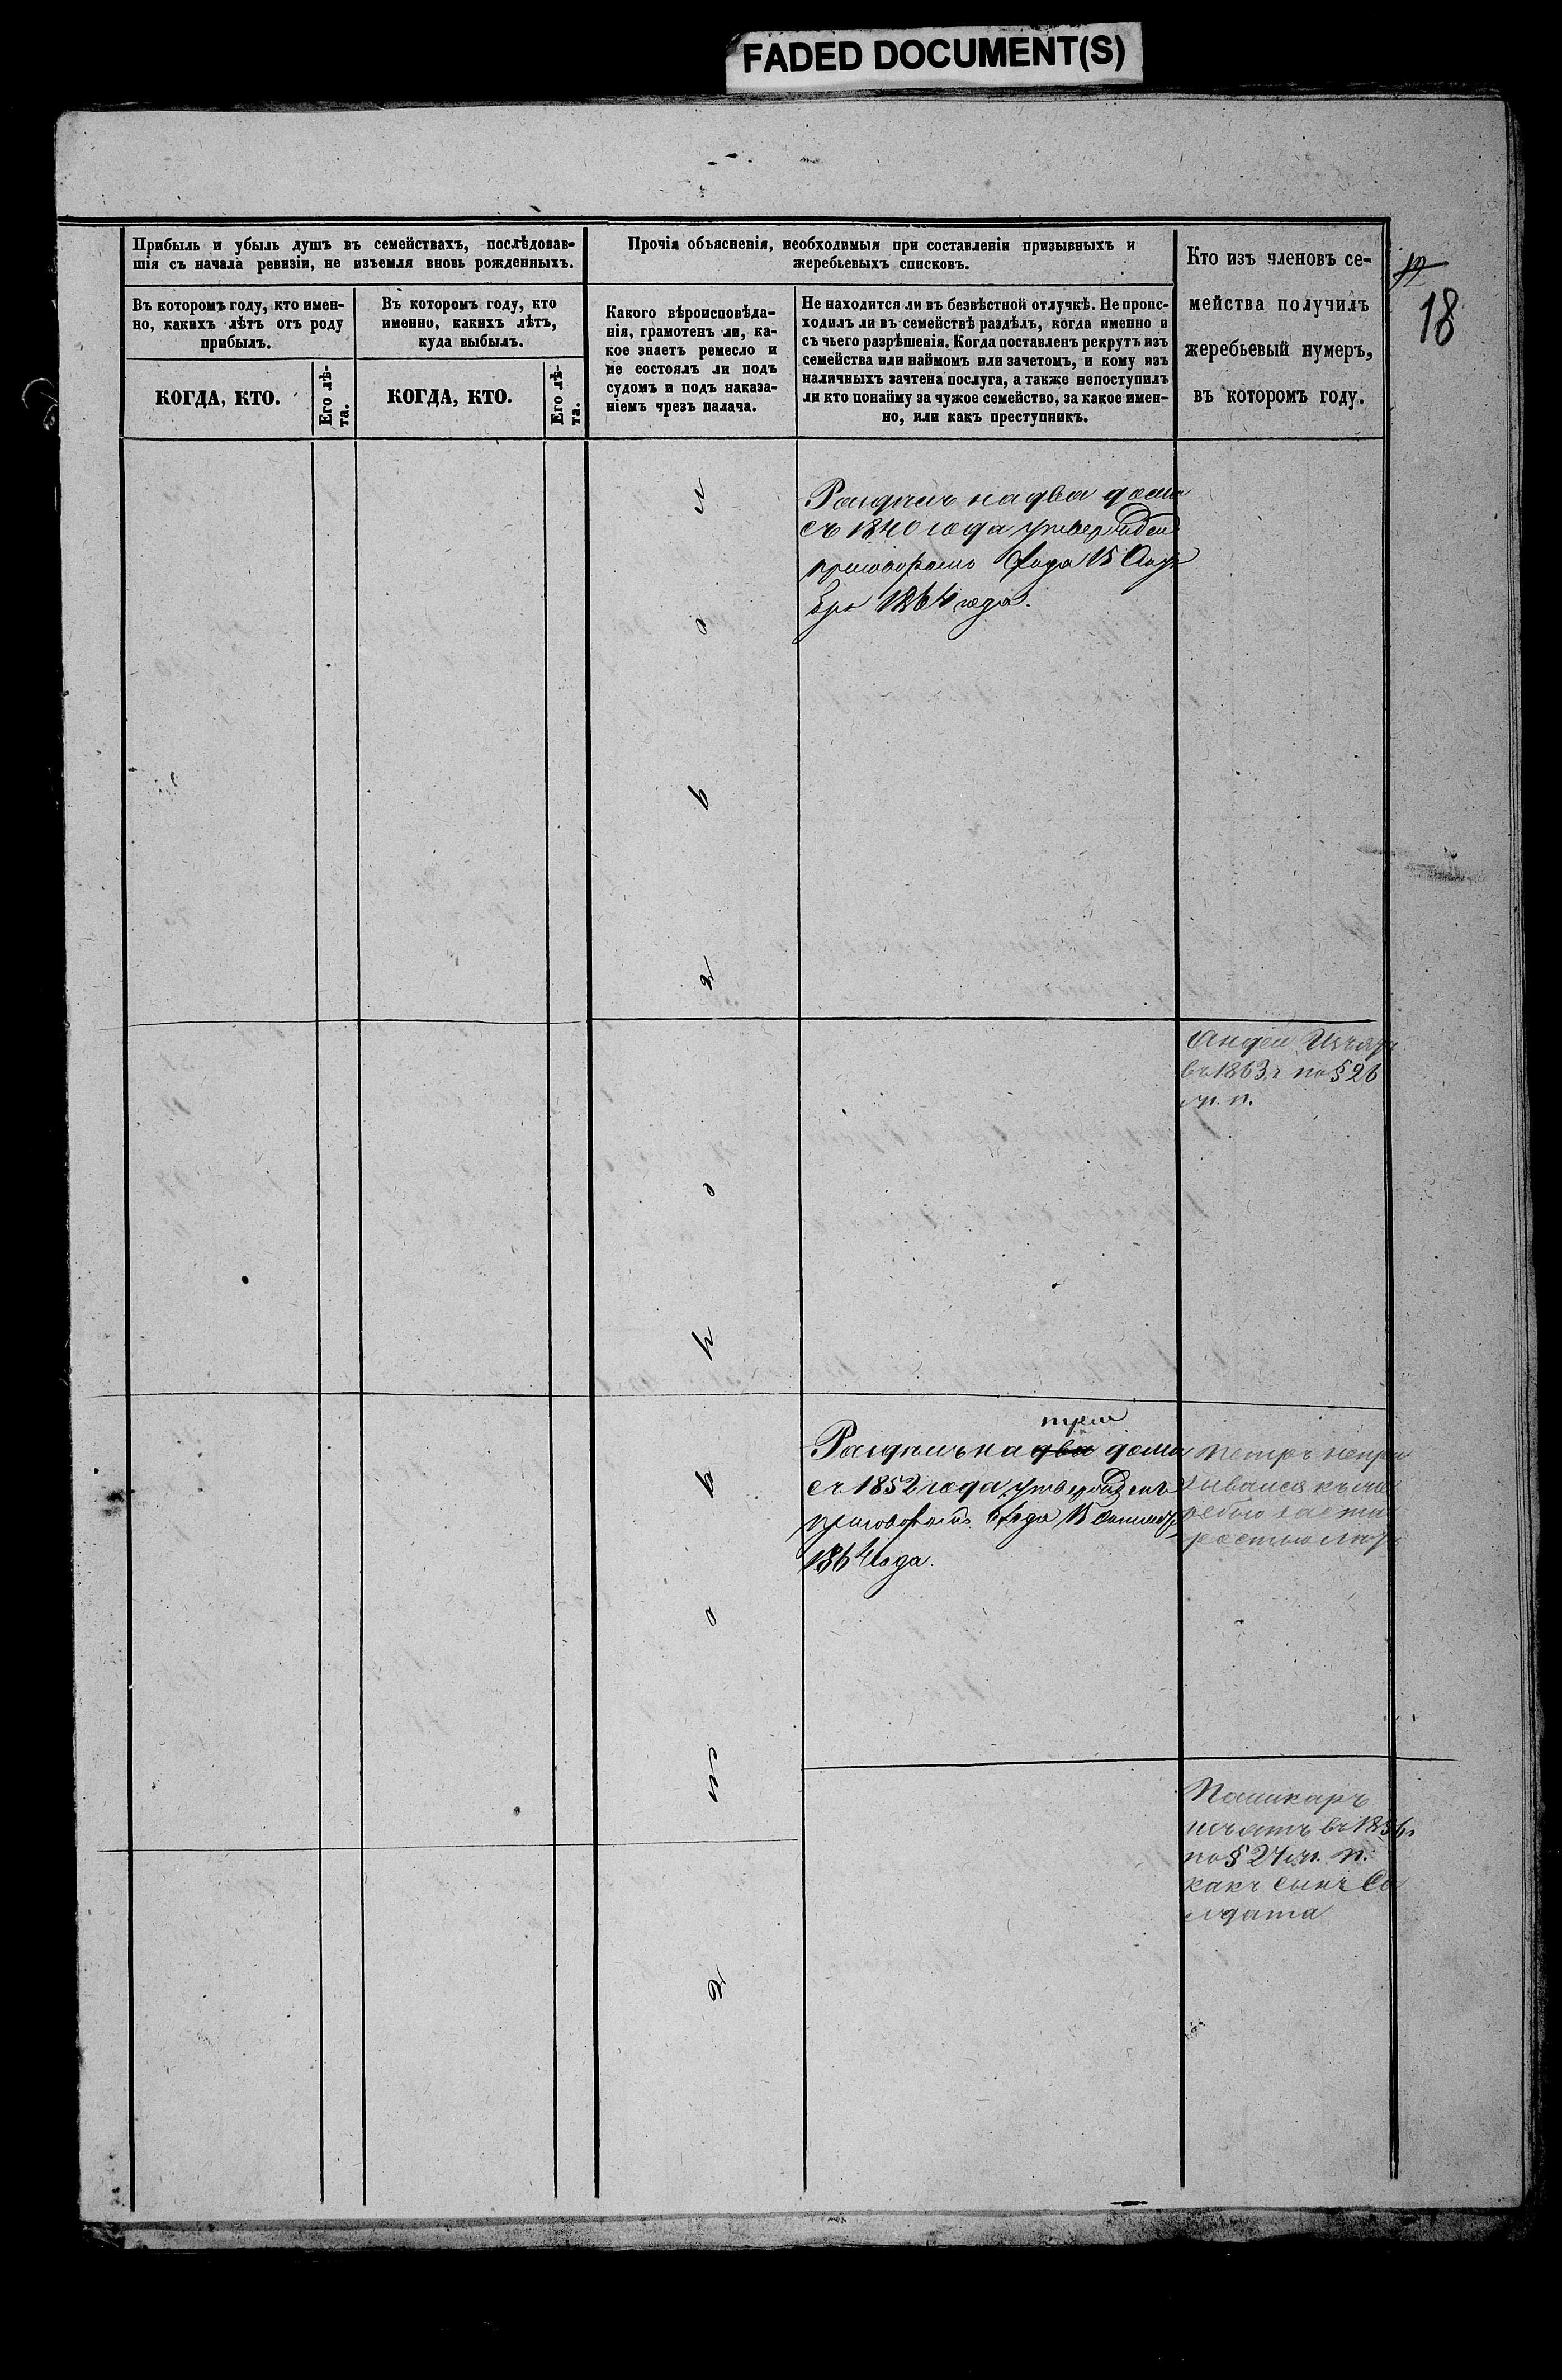 FADED DOCUMENT(S)
Прибыль и убыль душъ въ семействахъ, послѣдовав-
шія съ начала ревизіи, не изъемля вновь рожденныхъ.
Въ которомъ году, кто имен-
но, какихъ лѣтъ отъ роду
прибылъ.
КОГДА, КТО.
Его лѣ-
та.
Въ которомъ году, кто
именно, какихъ лѣтъ,
куда выбылъ.
КОГДА, КТО.
Его лѣ-
та.
Прочія объясненія, необходимыя при составленіи призывныхъ и
жеребьевыхъ списковъ.
Какого вѣроисповѣда-
нія, грамотенъ ли, ка-
кое знаетъ ремесло и
не состоялъ ли подъ
судомъ и подъ наказа-
ніемъ чрезъ палача.
Не находится ли въ безвѣстной отлучкѣ. Не проис-
ходилъ ли въ семействѣ раздѣлъ, когда именно и
съ чьего разрѣшенія. Когда поставленъ рекрутъ изъ
семейства или наймомъ или зачетомъ, и кому изъ
наличныхъ зачтена послуга, а также непоступилъ
ли кто понайму за чужое семейство, за какое имен-
но, или какъ преступникъ.
Кто изъ членовъ се-
мейства получилъ
жеребьевый нумеръ,
въ которомъ году.
18
Раздѣлъ на два дома
съ 1840 года утвержден
приговоромъ 15
бря 1864 года.
въ 1863 г по § 26
м. п.
три
Раздѣлъ на два дома
съ 1852 года утвержденъ
приговоромъ 15
1864 года.
Петръ непри
зывался къ же
ребью за ста
ростью лѣтъ
изъятъ въ 1856 г
по § 27 м. п.
какъ сынъ Со
лдата